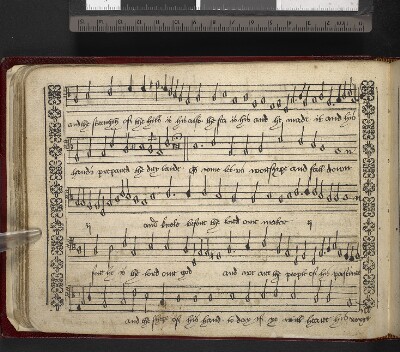 and the strength of the hills is his also the sea is his and he made it and his
hands prepared the dry lande O come let us worshyp and fall down
and knele before the lord oure maker ij
for he is the lord oure god and we are the people of his pasture
and the shepe of his hand to day if ye will heare his voyce